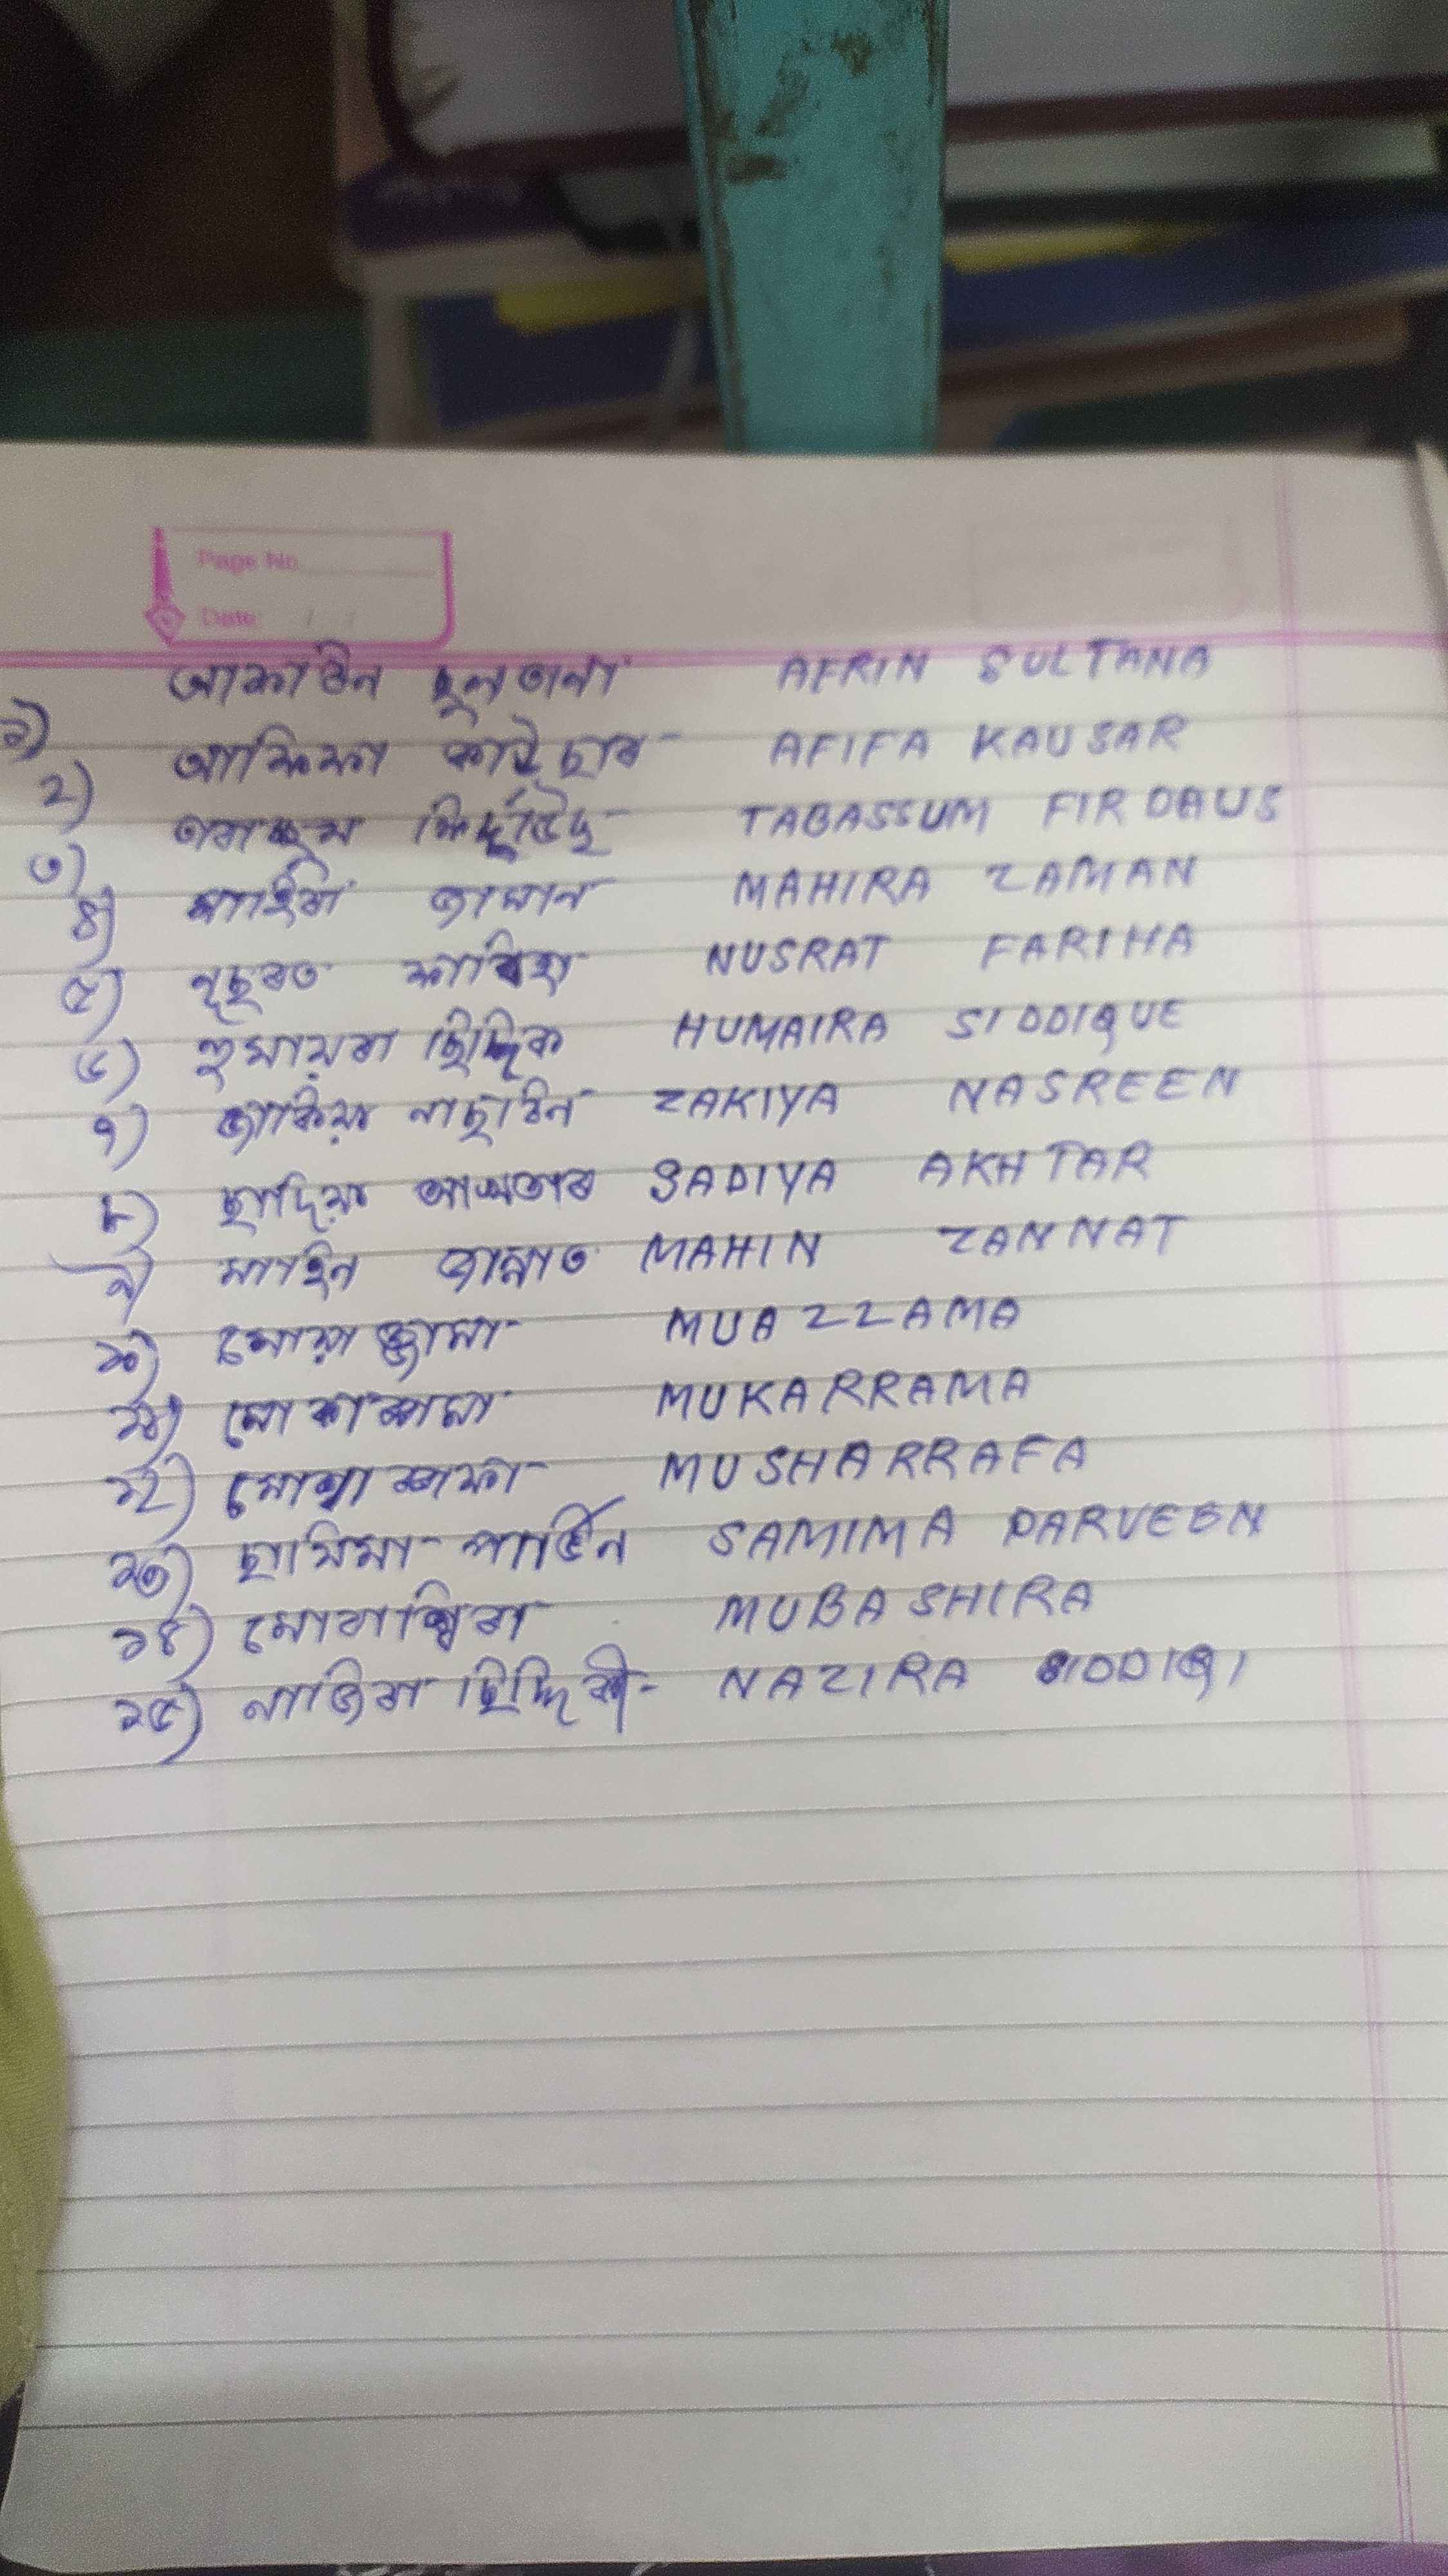 Page No.
Date: / /
১) আফৰিন ছুলতানা AFRIN SULTANA
২) আফিফা কাউছাৰ AFIFA KAUSAR
৩) তবাচ্ছুম ফিৰ্দ্দৌছ TABASSUM FIRDAUS
৪) মাহিৰা জামান MAHIRA ZAMAN
৫) নুছৰত ফাৰিহা NUSRAT FARIHA
৬) হুমায়ৰা ছিদ্দিক HUMAIRA SIDDIQUE
৭) জাকিয়া নাছৰিন ZAKIYA NASREEN
৮) ছাদিয়া আখতাৰ SADIYA AKHTAR
৯) মাহিন জান্নাত MAHIN ZANNAT
১০) মোয়াজ্জামা MUAZZAMA
১১) মোকাৰ্ৰামা MUKARRAMA
১২) মোশ্বাৰ্ৰাফা MUSHARRAFA
১৩) ছামিমা পাৰ্ভিন SAMIMA PARVEEN
১৪) মোবাশ্বিৰা MUBASHIRA
১৫) নাজিৰা ছিদ্দিকী NAZIRA SIDDIQI